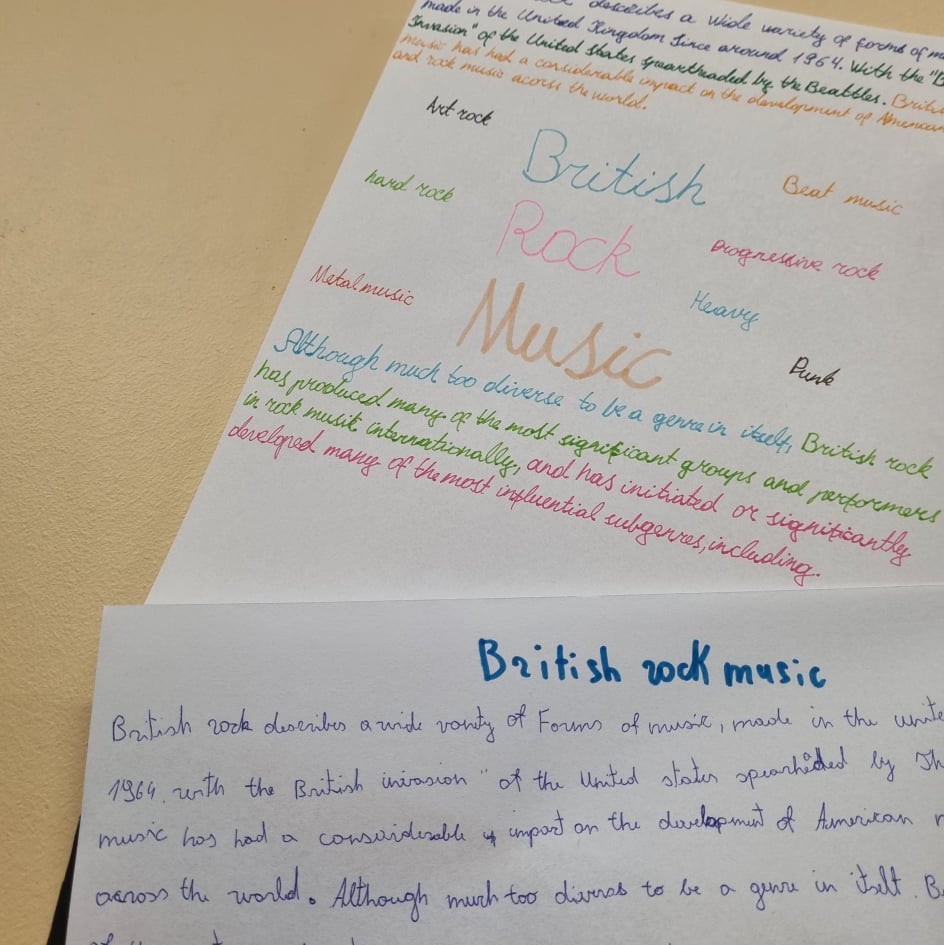 describes a wide variety of forms of
made in the United Kingdom Since around 1964. With the "B
Invasion" of the United States spearheaded by the Beattles. Briti
music has had a considerable impact on the development of American
and rock music acorss the world.
Art rock
British
Beat music
hard rock
Rock
Progressive rock
Metal music
Heavy
Music
Punk
Although much too diverse to be a genre in itself, British rock
has produced many of the most significant groups and performers
in rock musik internationally, and has initiated or significantly
developed many of the most influential subgenres, including.
British rock music
British rock describes a wide variety of Forms of music, made in the unite
1964. with the British invasion" of the United states spearheded by Th
music has had a considerable impact on the development of American
across the world. Although much too diverse to be a genre in itselt. B